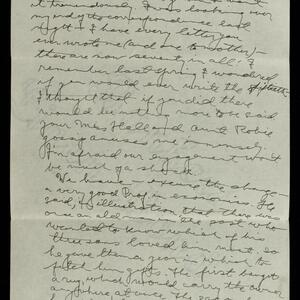 it tremendously. I've looked over
my indif correspondence last
night - I have every letter you
ever wrote me (and one to mother) -
there are now seventy in all! I
remember last spring I wondered
if you would ever write the fiftieth -
I thought that if you did there
would be nothing more to be said
your Miss Hall and Aunt Robie
gossip amuses me immensely.
I'm afraid our engagement won't
be much of a shock.
We have - excuse the change -
a very good Prof in economics. He
said, to illustration, that there was
once an old man in the past who
wanted to know which of his
three sons loved him most so
he gave them a year in which to
fetch him gifts. The first bought
a rug which would carry the owner
anywhere at once. The second